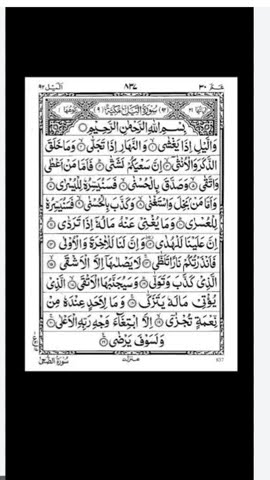 عم ٣٠
٨٣٧
اليل ٩٢
سورة اليل مكية
بسم الله الرحمن الرحيم
وَالَّيْلِ اِذَا يَغْشٰى وَالنَّهَارِ اِذَا تَجَلّٰى وَمَا خَلَقَ
الذَّكَرَ وَالْاُنْثٰى اِنَّ سَعْيَكُمْ لَشَتّٰى فَاَمَّا مَنْ اَعْطٰى
وَاتَّقٰى وَصَدَّقَ بِالْحُسْنٰى فَسَنُيَسِّرُهٗ لِلْيُسْرٰى
وَاَمَّا مَنْ بَخِلَ وَاسْتَغْنٰى وَكَذَّبَ بِالْحُسْنٰى فَسَنُيَسِّرُهٗ
لِلْعُسْرٰى وَمَا يُغْنِيْ عَنْهُ مَالُهٗٓ اِذَا تَرَدّٰى
اِنَّ عَلَيْنَا لَلْهُدٰى وَاِنَّ لَنَا لَلْاٰخِرَةَ وَالْاُوْلٰى
فَاَنْذَرْتُكُمْ نَارًا تَلَظّٰى لَا يَصْلٰىهَآ اِلَّا الْاَشْقَى
الَّذِيْ كَذَّبَ وَتَوَلّٰى وَسَيُجَنَّبُهَا الْاَتْقَى الَّذِيْ
يُؤْتِيْ مَالَهٗ يَتَزَكّٰى وَمَا لِاَحَدٍ عِنْدَهٗ مِنْ
نِّعْمَةٍ تُجْزٰٓى اِلَّا ابْتِغَآءَ وَجْهِ رَبِّهِ الْاَعْلٰى
وَلَسَوْفَ يَرْضٰى
سورة الضحى
837